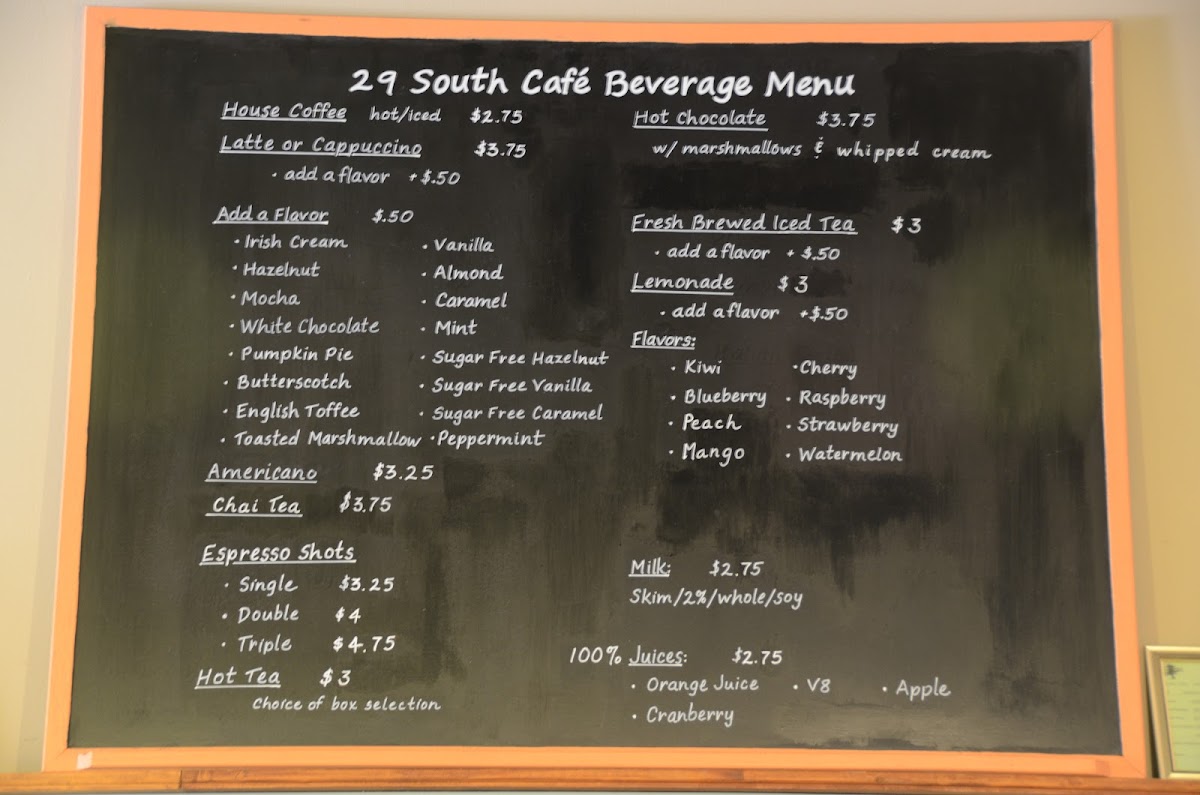 29 South Café Beverage Menu
House Coffee hot/iced $2.75
Latte or Cappuccino $3.75
• add a flavor + $.50
Add a Flavor $.50
• Irish Cream
• Hazelnut
• Mocha
• White Chocolate
• Pumpkin Pie
• Butterscotch
• English Toffee
• Toasted Marshmallow
• Vanilla
• Almond
• Caramel
• Mint
• Sugar Free Hazelnut
• Sugar Free Vanilla
• Sugar Free Caramel
• Peppermint
Americano $3.25
Chai Tea $3.75
Espresso Shots
• Single $3.25
• Double $4
• Triple $4.75
Hot Tea $3
Choice of box selection
Hot Chocolate $3.75
w/ marshmallows & whipped cream
Fresh Brewed Iced Tea $3
• add a flavor + $.50
Lemonade $3
• add a flavor + $.50
Flavors:
• Kiwi
• Blueberry
• Peach
• Mango
• Cherry
• Raspberry
• Strawberry
• Watermelon
Milk: $2.75
Skim/2%/whole/soy
100% Juices: $2.75
• Orange Juice • V8 • Apple
• Cranberry